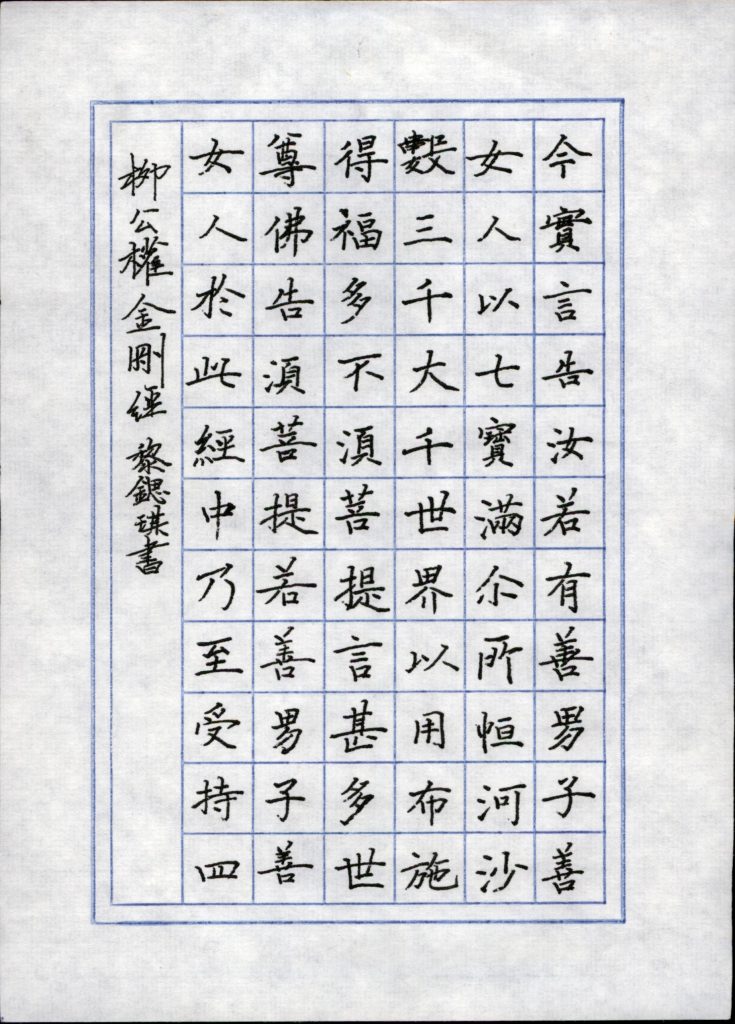 今實言告汝若有善男子善
女人以七寶滿尒所恒河沙
數三千大千世界以用布施
得福多不須菩提言甚多世
尊佛告須菩提若善男子善
女人於此經中乃至受持四
柳公權金剛經 黎鍶琪書